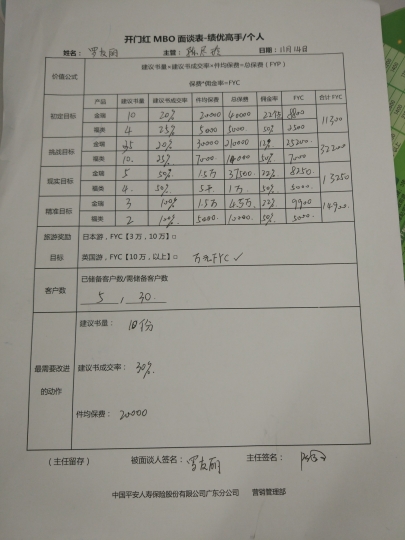 开门红 MBO 面谈表-绩优高手/个人
姓名： 罗友丽 主管： 日期：11月14日
价值公式
建议书量*建议书成交率=件均保费=总保费（FYP）
保费*佣金率=FYC
产品 建议书量 建议书成交率 件均保费 总保费 佣金率 FYC 合计 FYC
初定目标 金瑞 10 20% 20000 40000 22% 8800 11300
福类 4 25% 5000 5000 50% 2500
挑战目标 金瑞 35 20% 30000 210000 12% 25200 32200
福类 10. 25% 7000 14000 50% 7000
现实目标 金瑞 5 50% 1.5万 37500 22% 8250 13250
福类 4. 50% 5千 1万 50% 5000.
精准目标 金瑞 3 100% 1.5万 4.5万 22% 9900 14900.
福类 2 100% 5000 10000 50% 5000.
旅游奖励
目标
日本游，FYC【3万，10万】□
英国游，FYC【10万，以上】□ 万元FYC ✓
客户数
已储备客户数/需储备客户数
5 , 30.
最需要改进
的动作
建议书量： 10份
建议书成交率： 30%
件均保费： 20000
（主任留存） 被面谈人签名： 罗友丽 主任签名：
中国平安人寿保险股份有限公司广东分公司 营销管理部